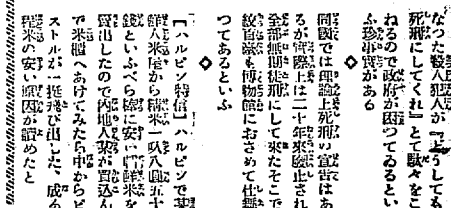 なつた殺人犯人が『どうしても
死刑にしてくれ』とて駄々をこ
ねるので政府が困つてゐるとい
ふ珍事實がある
◇
同國では理論上死刑の宣告はあ
るが實際上は二十年來廢止され
全部無期徒刑にして來たそこで
絞首臺も博物館におさめて仕舞
つてあるといふ
◇
【ハルピン特信】ハルピンで某
鮮人米屋から精米一叺八圓五十
錢といふべら棒に安い朝鮮米を
賣出したので内地人某が買込ん
で米櫃へあけてみたら中からピ
ストルが一挺飛び出した、成る
程米の安い原因が讀めたと